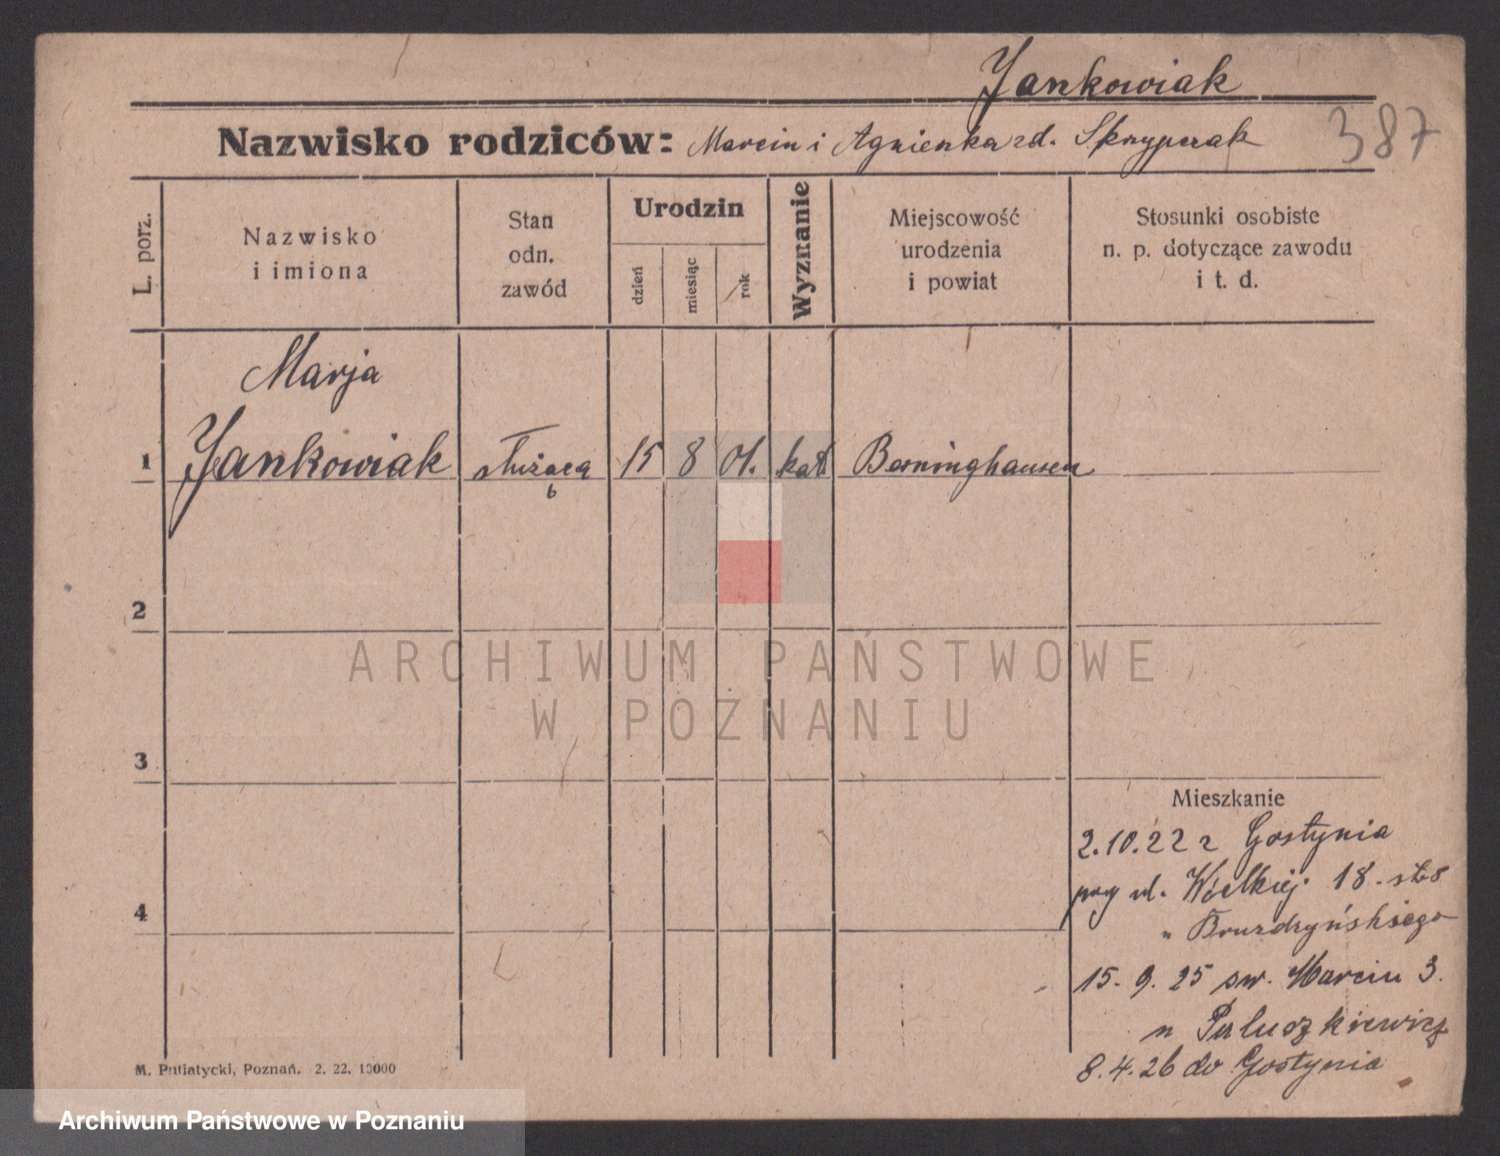 Jankowiak
Nazwisko rodziców: Marcin i Agnieszka zd. Skrzypczak 387
L. porz.
Nazwisko
i imiona
Stan
odn.
zawód
Urodzin
dzień
miesiąc
rok
Wyznanie
Miejscowość
urodzenia
i powiat
Stosunki osobiste
n. p. dotyczące zawodu
i t. d.
Marja
1 Jankowiak służąca 15 8 01. kat Berninghausen
2
ARCHIWUM PAŃSTWOWE
W POZNANIU
3
Mieszkanie
2.10.22 z Gostynia
ul. Wielkiej 18
4
15. 9. 25 św. Marcin 3.
8.4.26 do Gostynia
M. Putiatycki, Poznań. 2. 22. 10000
Archiwum Państwowe w Poznaniu